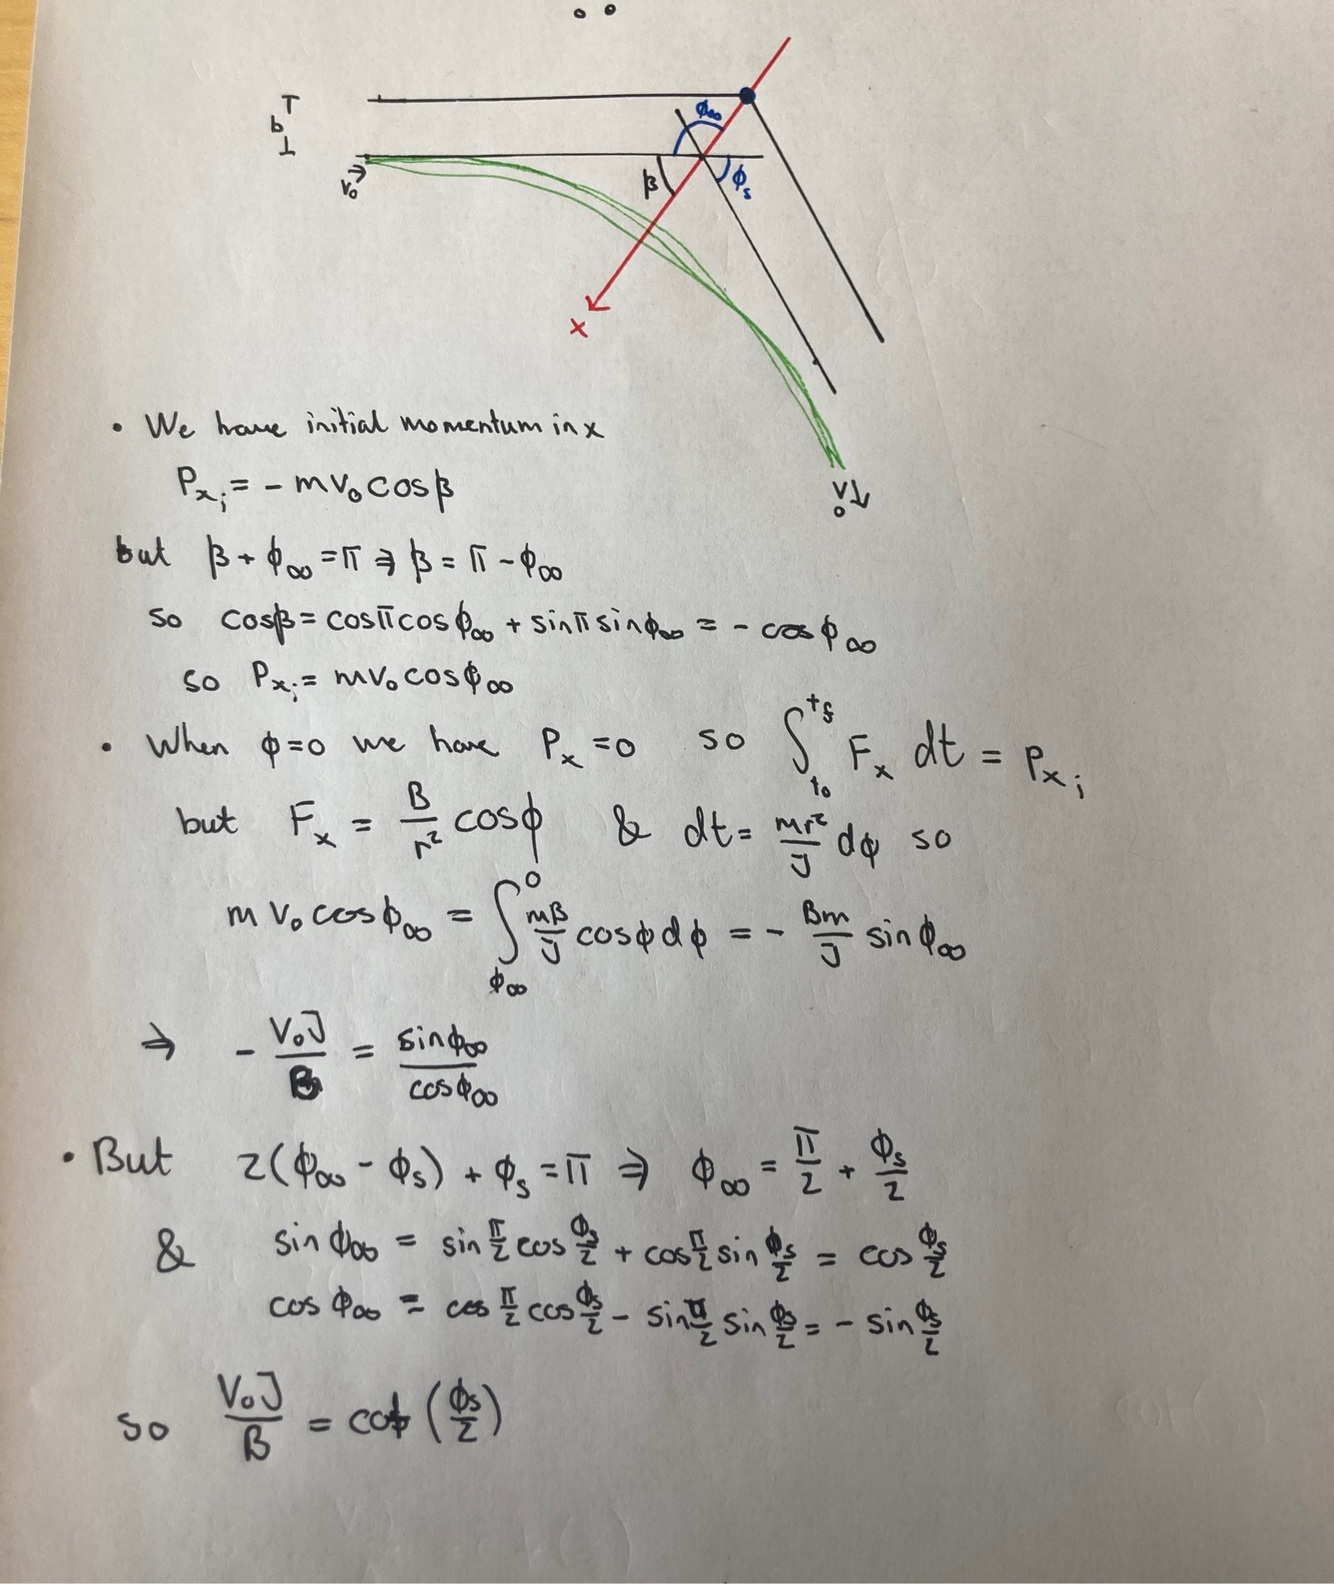 b
v₀
ϕ∞
β
ϕₛ
x
v₀
• We have initial momentum in x
Pₓᵢ = - mv₀cosβ
but β + ϕ∞ = π ⇒ β = π - ϕ∞
so cosβ = cosπcosϕ∞ + sinπsinϕ∞ = - cosϕ∞
so Pₓᵢ = mv₀cosϕ∞
• When ϕ=0 we have Pₓ = 0 so ∫_{t₀}^{t_f} Fₓ dt = Pₓᵢ
but Fₓ = B/r² cosϕ & dt = mr²/J dϕ so
mv₀cosϕ∞ = ∫_{ϕ∞}^{0} mB/J cosϕdϕ = - Bm/J sinϕ∞
⇒ - V₀J/B = sinϕ∞/cosϕ∞
• But 2(ϕ∞ - ϕₛ) + ϕₛ = π ⇒ ϕ∞ = π/2 + ϕₛ/2
& sinϕ∞ = sin π/2 cos ϕₛ/2 + cos π/2 sin ϕₛ/2 = cos ϕₛ/2
cosϕ∞ = cos π/2 cos ϕₛ/2 - sin π/2 sin ϕₛ/2 = - sin ϕₛ/2
so V₀J/B = cot (ϕₛ/2)